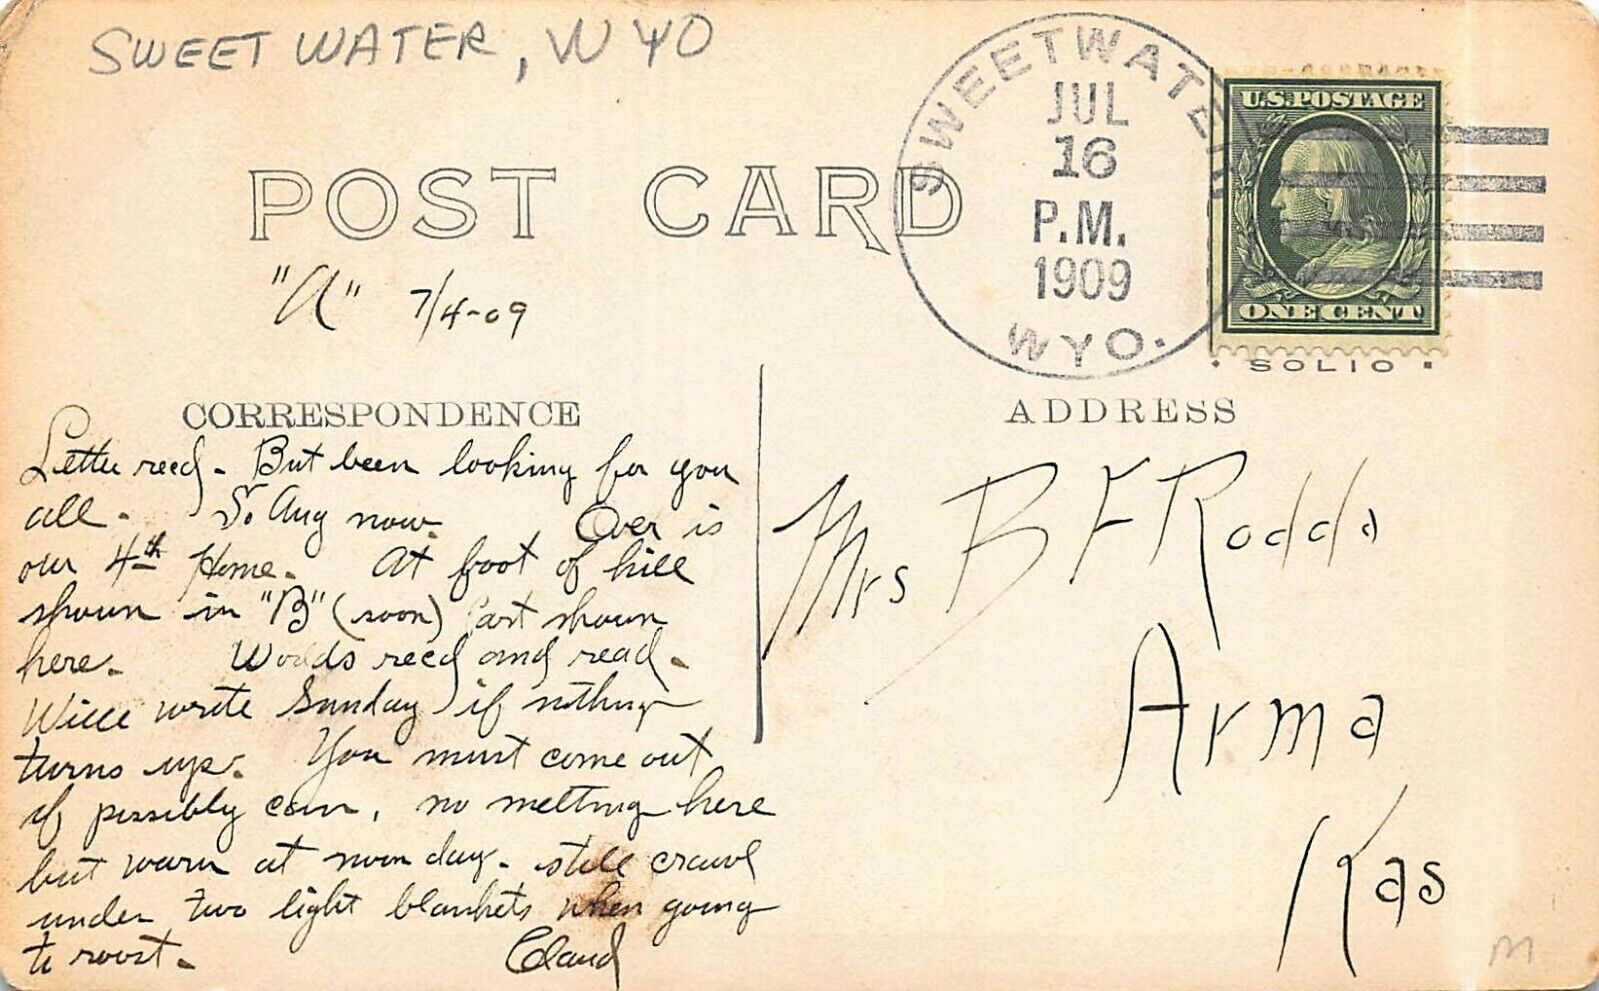 SWEET WATER, WYO
SWEETWATER
JUL
16
P.M.
1909
WYO.
U.S. POSTAGE
ONE CENT
SOLIO
POST CARD
"A" 7/4-09
CORRESPONDENCE
Letter recd. But been looking for you
all. So Aug now. Over is
our 4th Home. At foot of hill
shown in "B" (soon) Part shown
here. Words recd and read.
Will write Sunday if nothing
turns up. You must come out
if possibly can, no melting here
but warm at noon day. still crawl
under two light blankets when going
to roost. Claud
ADDRESS
Mrs B F Rodda
Arma
Kas
M